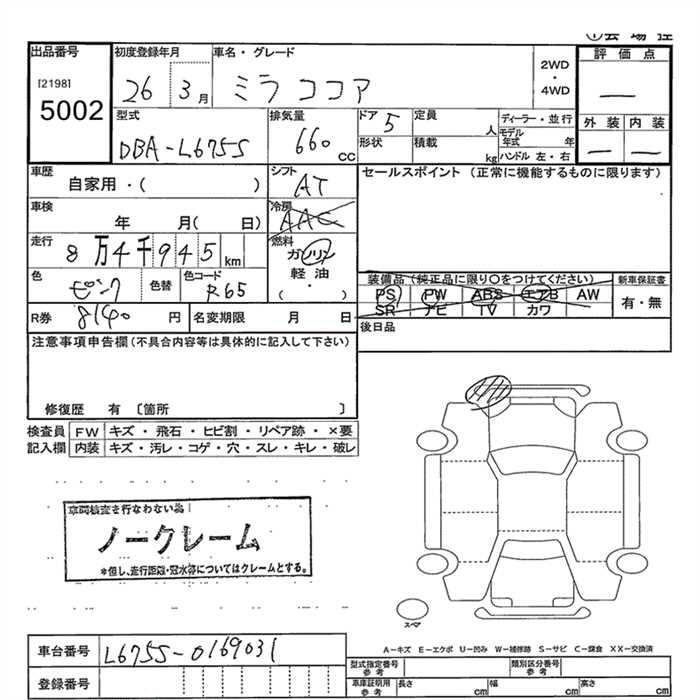 出品番号
[2198]
5002
初度登録年月
26 3 月
車名・グレード
ミラ ココア
2WD
・
4WD
評 価 点
—
外 装 内 装
— —
型式
DBA-L675S
排気量
660 CC
ドア 5
形状
定員 人
積載 kg
ディーラー・並行
モデル年式 年
ハンドル 左・右
車歴
自家用・( )
シフト
AT
セールスポイント (正常に機能するものに限ります)
車検
年 月( 日)
冷房
AAC
走行
8万4千945 km
燃料
ガソリン
軽 油
( ・ )
色
ピンク
色替
色コード
R65
装備品(純正品に限り○をつけてください)
PS PW ABS エアB AW
SR ナビ TV カワ
新車保証書
有・無
R券 8140 円
名変期限 月 日
後日品
注意事項申告欄(不具合内容等は具体的に記入して下さい)
修復歴 有 〔箇所 〕
検査員記入欄
FW キズ・飛石・ヒビ割・リペア跡・×要
内装 キズ・汚レ・コゲ・穴・スレ・キレ・破レ
車両検査を行なわない為
ノークレーム
*但し、走行距離・冠水等についてはクレームとする。
スペア
A−キズ E−エクボ U−凹ミ W−補修跡 S−サビ C−腐食 XX−交換済
車台番号 L675S-0169031
登録番号
型式指定番号 参考
類別区分番号 参考
車庫証明用 参考
長さ cm 幅 cm 高さ cm